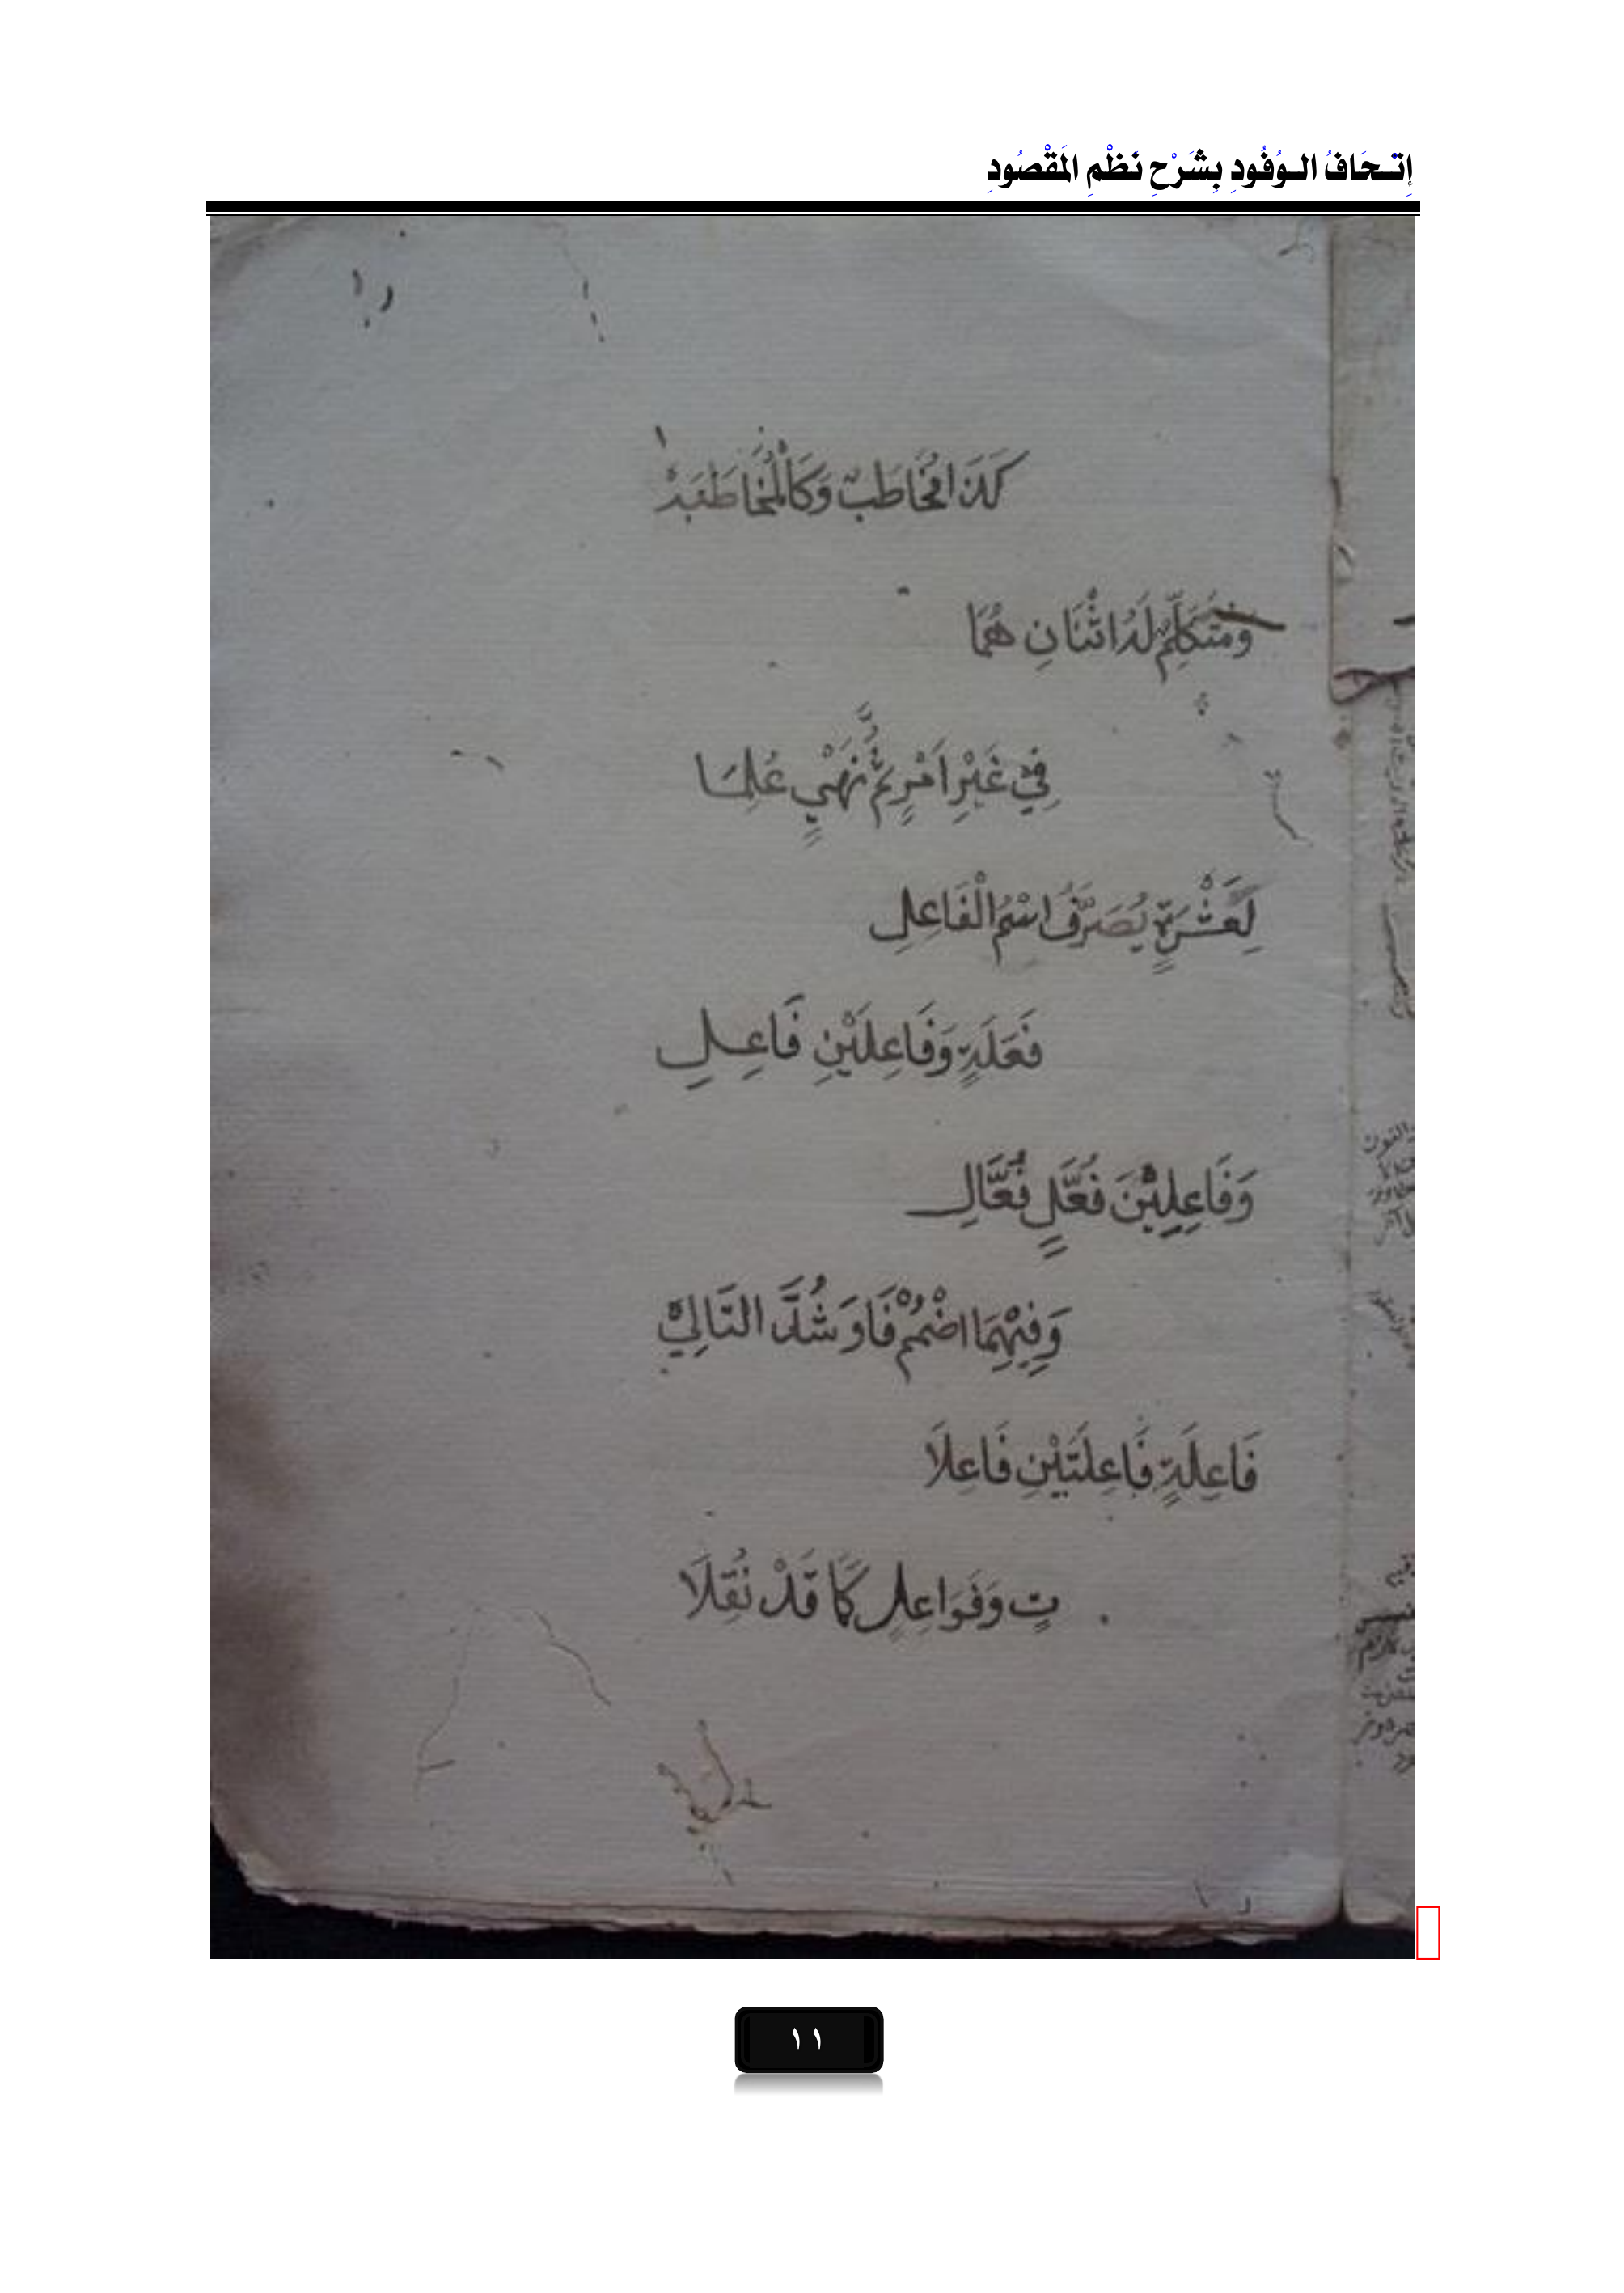 إتحَافُ الوُفُودِ بِشَرْحِ نَظْمِ المَقْصُودِ
كَذَا مُخَاطَبٌ وَكَالْمُخَاطَبَهْ
وَمُتَكَلِّمٌ لَهُ اثْنَانِ هُمَا
فِيْ غَيْرِ اَمْرٍ ثُمَّ نَهْيٍ عُلِمَا
لِعَشْرَةٍ يُصَرَّفُ اسْمُ الْفَاعِلِ
فَعَلَةٍ وَفَاعِلَيْنِ فَاعِلٍ
وَفَاعِلِيْنَ فُعَّلٍ فُعَّالِ
وَفِيْهِمَا اضْمُمْ فَا وَشُدَّ التَّالِيْ
فَاعِلَةٍ فَاعِلَتَيْنِ فَاعِلَا
تٍ وَفَوَاعِلٍ كَمَا قَدْ نُقِلَا
١١